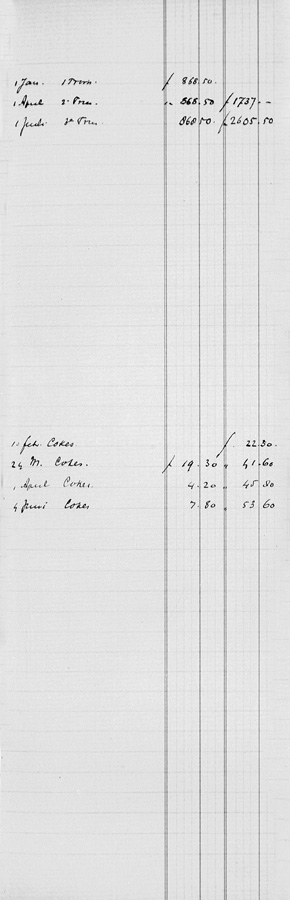 1 Jan. 1 Trim. f 868.50.
1 April 2e Trim. " 868.50 f 1737.--
1 Juli 3e Trim. 868 50. f 2605.50
10 feb. Cokes. f. 22.30.
24 M. Cokes. f 19.30 " 41.60
April Cokes. 4.20 " 45.80
4 Juni Cokes 7.80 " 53.60